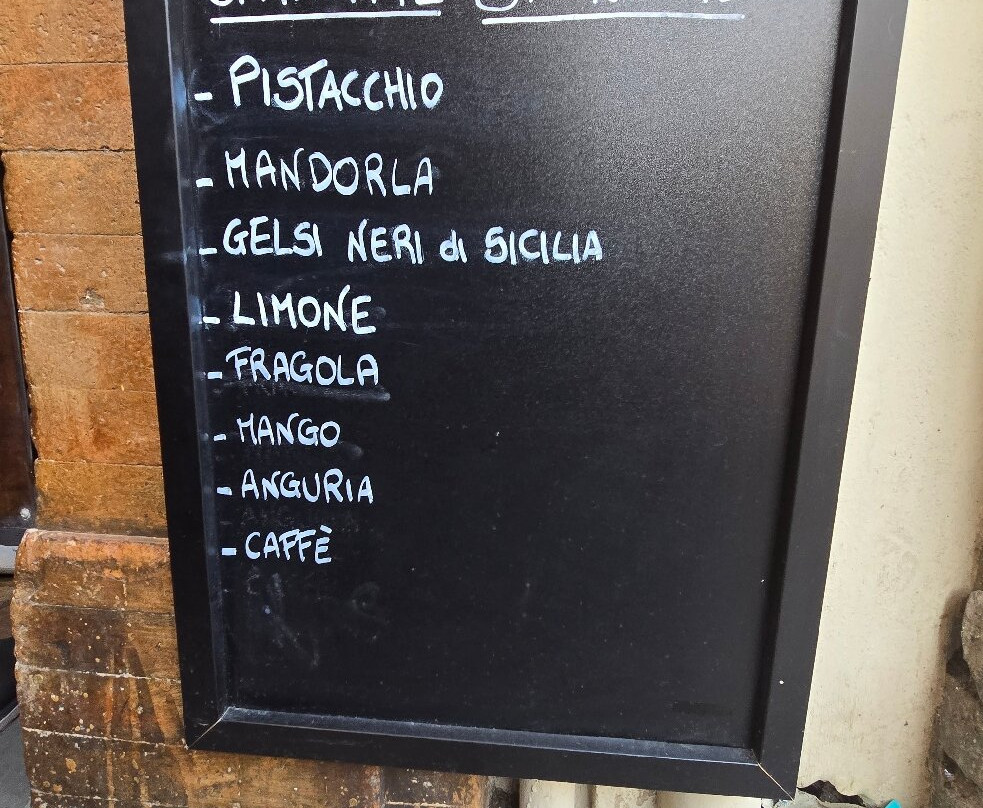 - PISTACCHIO
- MANDORLA
- GELSI NERI di SICILIA
- LIMONE
- FRAGOLA
- MANGO
- ANGURIA
- CAFFÈ